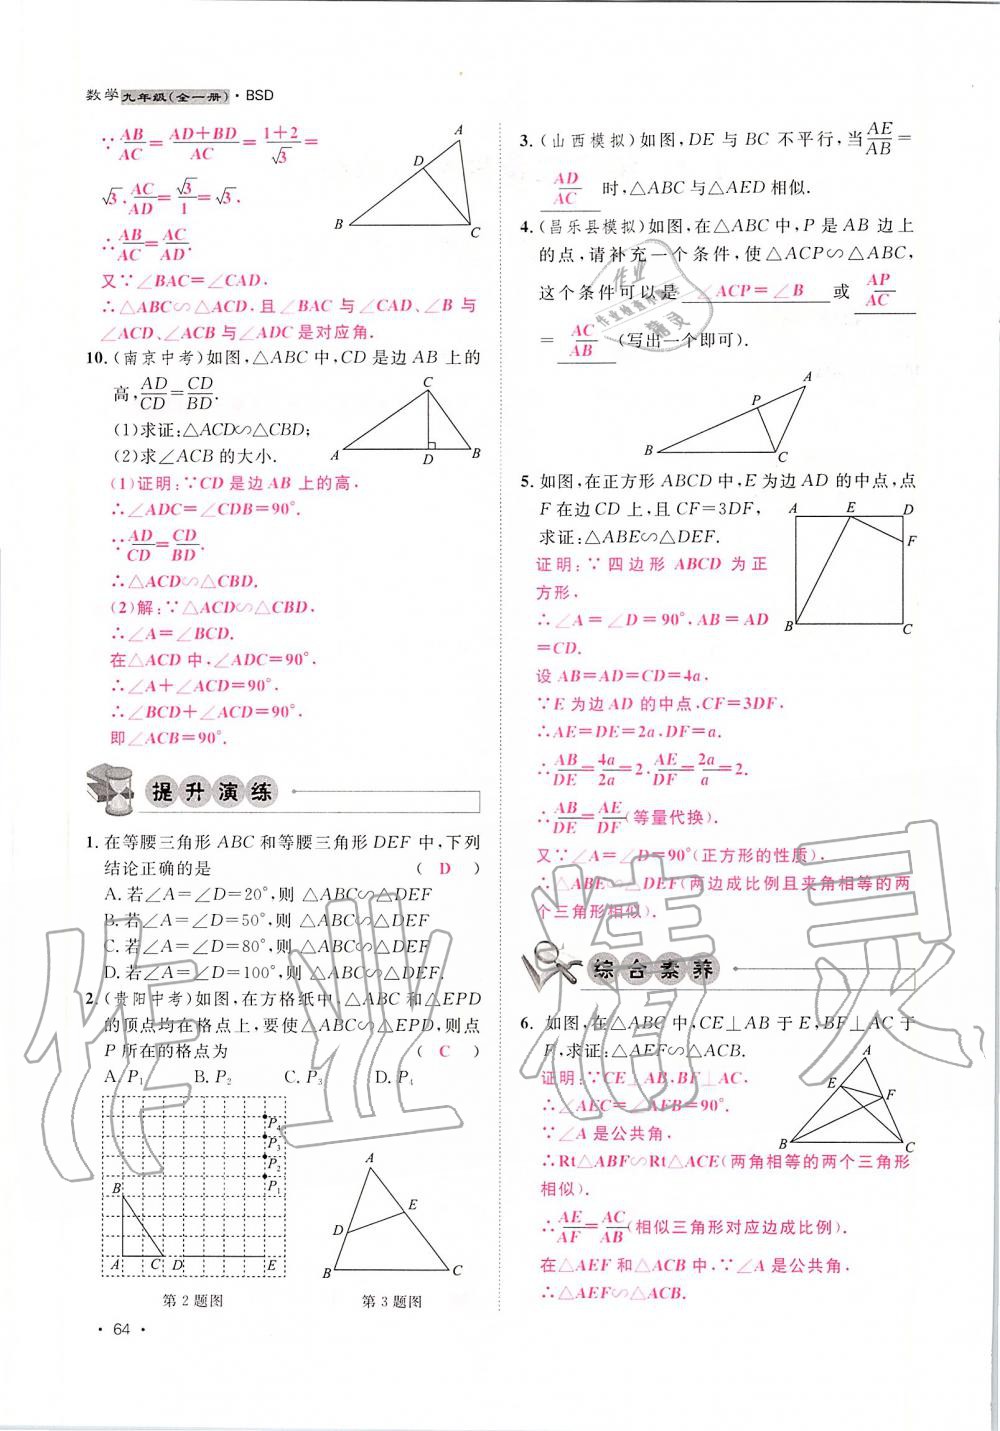 数学九年级(全一册)·BSD
∵AB/AC=(AD+BD)/AC=(1+2)/√3=
√3.AC/AD=√3/1=√3.
∴AB/AC=AC/AD.
又∵∠BAC=∠CAD.
∴△ABC∽△ACD,且∠BAC与∠CAD、∠B与
∠ACD、∠ACB与∠ADC是对应角.
A
D
B
C
10.(南京中考)如图,△ABC中,CD是边AB上的
高,AD/CD=CD/BD.
(1)求证:△ACD∽△CBD;
(2)求∠ACB的大小.
C
A
D
B
(1)证明:∵CD是边AB上的高,
∴∠ADC=∠CDB=90°.
∵AD/CD=CD/BD.
∴△ACD∽△CBD.
(2)解:∵△ACD∽△CBD,
∴∠A=∠BCD.
在△ACD中,∠ADC=90°.
∴∠A+∠ACD=90°.
∴∠BCD+∠ACD=90°.
即∠ACB=90°.
提升演练
1.在等腰三角形ABC和等腰三角形DEF中,下列
结论正确的是 ( D )
A.若∠A=∠D=20°,则△ABC∽△DEF
B.若∠A=∠D=50°,则△ABC∽△DEF
C.若∠A=∠D=80°,则△ABC∽△DEF
D.若∠A=∠D=100°,则△ABC∽△DEF
2.(贵阳中考)如图,在方格纸中,△ABC和△EPD
的顶点均在格点上,要使△ABC∽△EPD,则点
P所在的格点为 ( C )
A.P₁ B.P₂ C.P₃ D.P₄
P₄
P₃
P₂
P₁
B
A C D E
第2题图
A
E
D
B
C
第3题图
·64·
3.(山西模拟)如图,DE与BC不平行,当AE/AB=
AD/AC时,△ABC与△AED相似.
4.(昌乐县模拟)如图,在△ABC中,P是AB边上
的点,请补充一个条件,使△ACP∽△ABC,
这个条件可以是 ∠ACP=∠B 或 AP/AC
= AC/AB (写出一个即可).
A
P
B
C
5.如图,在正方形ABCD中,E为边AD的中点,点
F在边CD上,且CF=3DF,
求证:△ABE∽△DEF.
A E D
F
B C
证明:∵四边形ABCD为正
方形,
∴∠A=∠D=90°,AB=AD
=CD.
设AB=AD=CD=4a,
∵E为边AD的中点,CF=3DF,
∴AE=DE=2a,DF=a.
∴AB/DE=4a/2a=2.AE/DF=2a/a=2.
∴AB/DE=AE/DF(等量代换).
又∵∠A=∠D=90°(正方形的性质).
∴△ABE∽△DEF(两边成比例且夹角相等的两
个三角形相似).
综合素养
6.如图,在△ABC中,CE⊥AB于E,BF⊥AC于
F,求证:△AEF∽△ACB.
A
E
F
B
C
证明:∵CE⊥AB,BF⊥AC.
∴∠AEC=∠AFB=90°.
∵∠A是公共角,
∴Rt△ABF∽Rt△ACE(两角相等的两个三角形
相似).
∴AE/AF=AC/AB(相似三角形对应边成比例).
在△AEF和△ACB中,∵∠A是公共角,
∴△AEF∽△ACB.
作业精灵